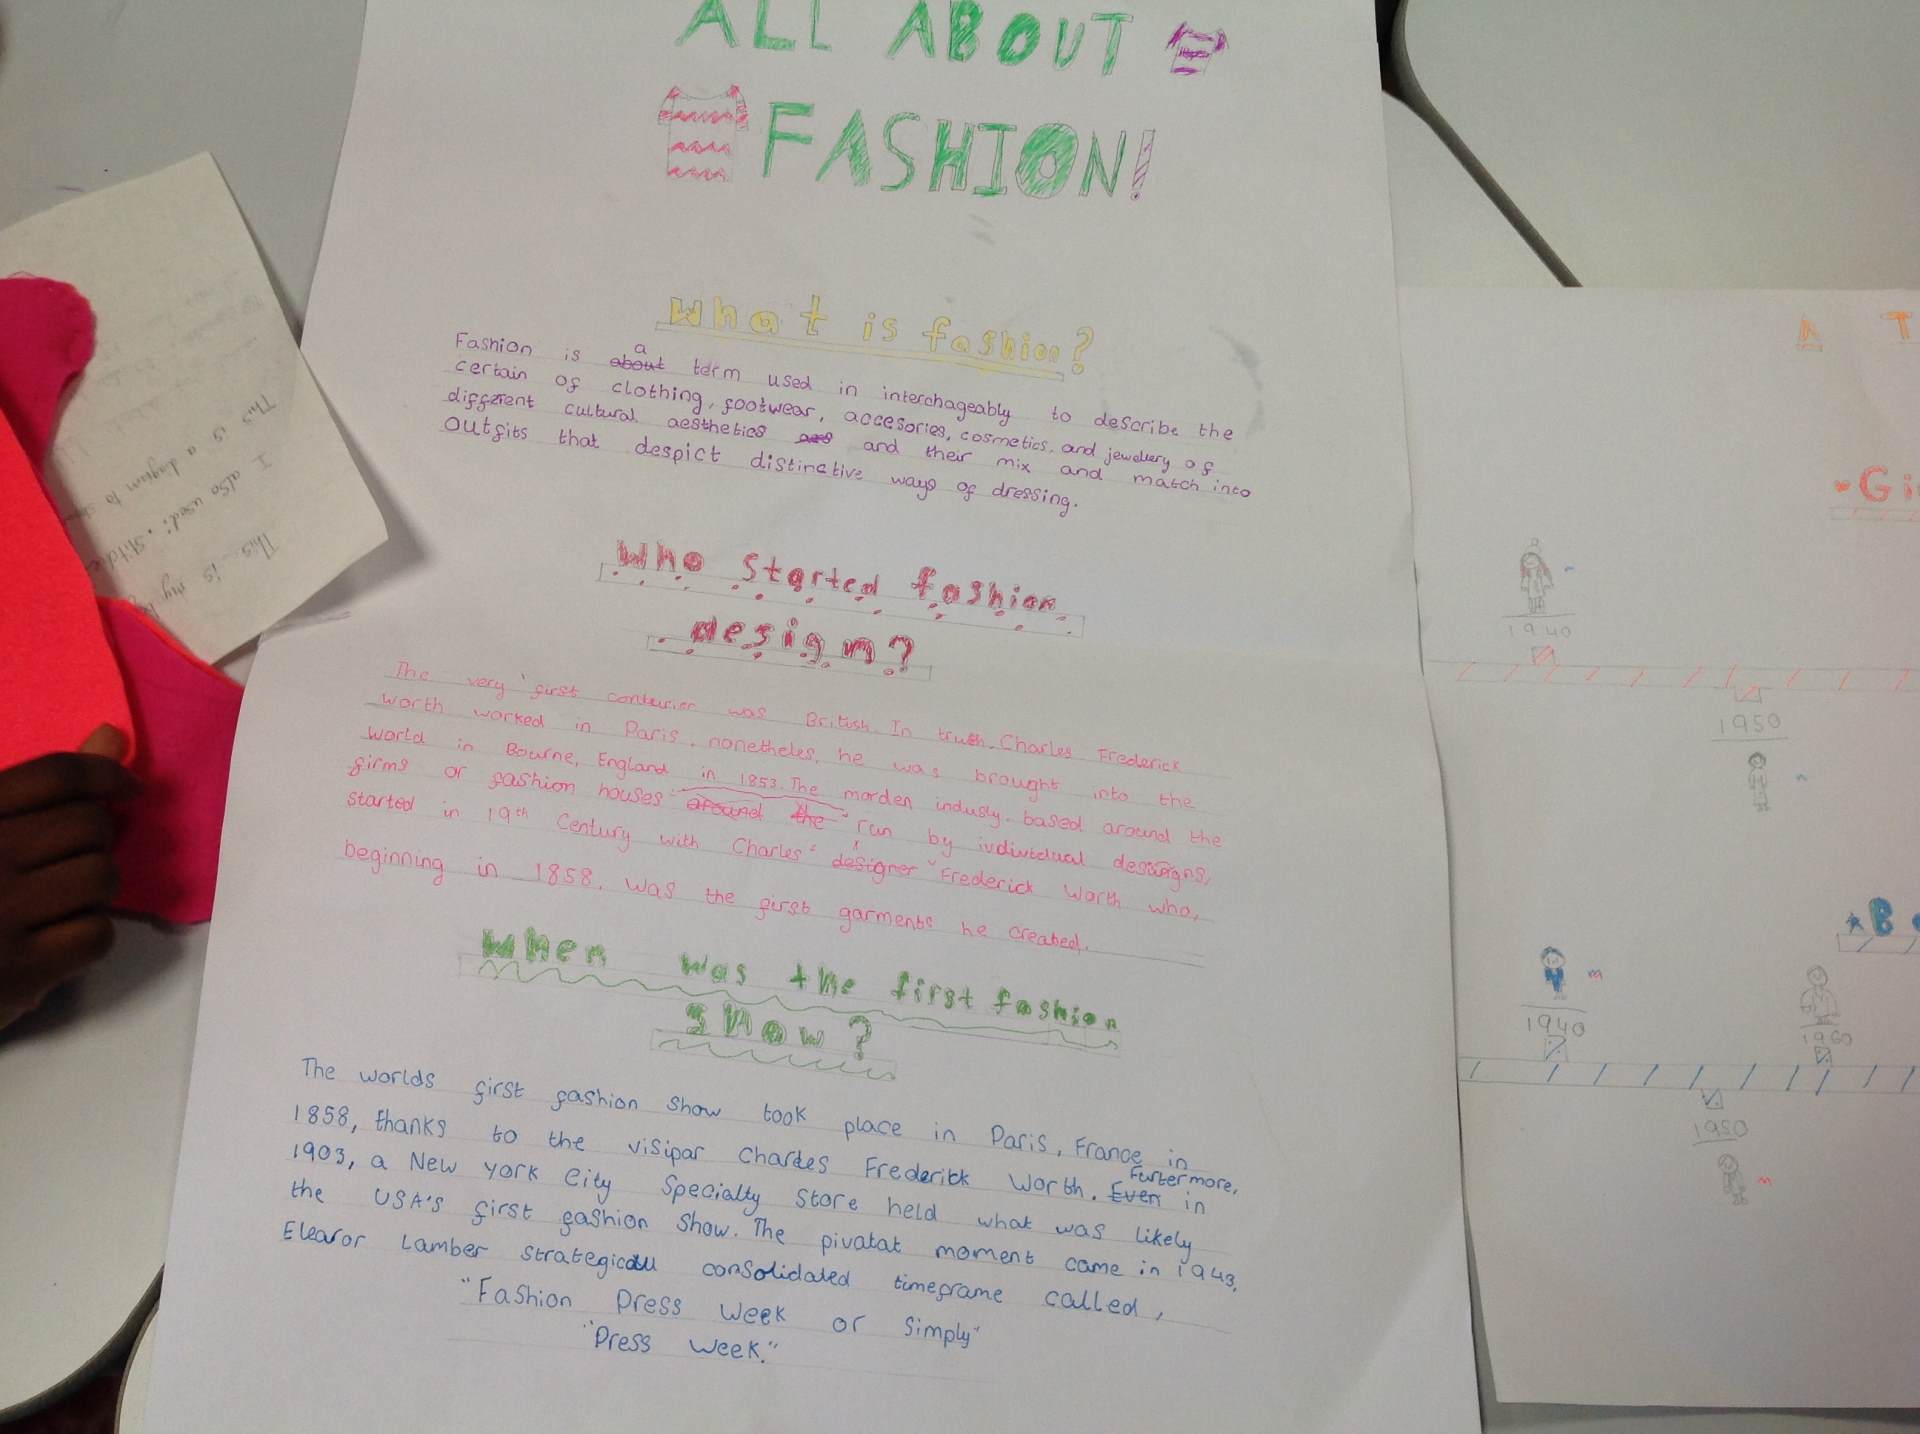 ALL ABOUT
FASHION!
What is fashion?
Fashion is about a term used in interchageably to describe the
certain of clothing, footwear, accesories, cosmetics, and jewellery of
different cultural aesthetics and their mix and match into
outfits that despict distinctive ways of dressing.
Who started fashion
design?
The very first conteurier was British. In truth, Charles Frederick
Worth worked in Paris, nonetheles, he was brought into the
world in Bourne, England in 1853. The morden industy. based around the
firms or fashion houses around the run by individual
started in 19th Century with Charles designer Frederick Worth who,
beginning in 1858. was the first garments he created.
When was the first fashion
show?
The worlds first fashion show took place in Paris, France in
1858, thanks to the visipar Charles Frederick Worth. Even Furtermore,
1903, a New York City Specialty Store held what was likely in
the USA's first fashion show. The pivatat moment came in 1943,
Elearor Lamber consolidated timeframe called,
"Fashion Press Week or Simply"
"Press week."
This is my
I also used: • Stitche
This is a dagium to
A T
Gi
1940
1950
B
1940
1960
1950